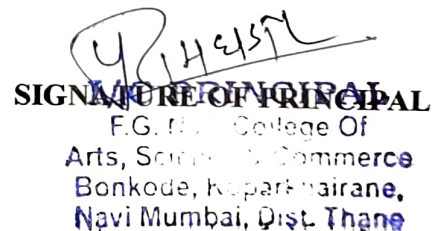 SIGNATURE OF PRINCIPAL
I/C PRINCIPAL
F.G. College Of
Arts, Commerce
Bonkode, Koparkhairane,
Navi Mumbai, Dist. Thane